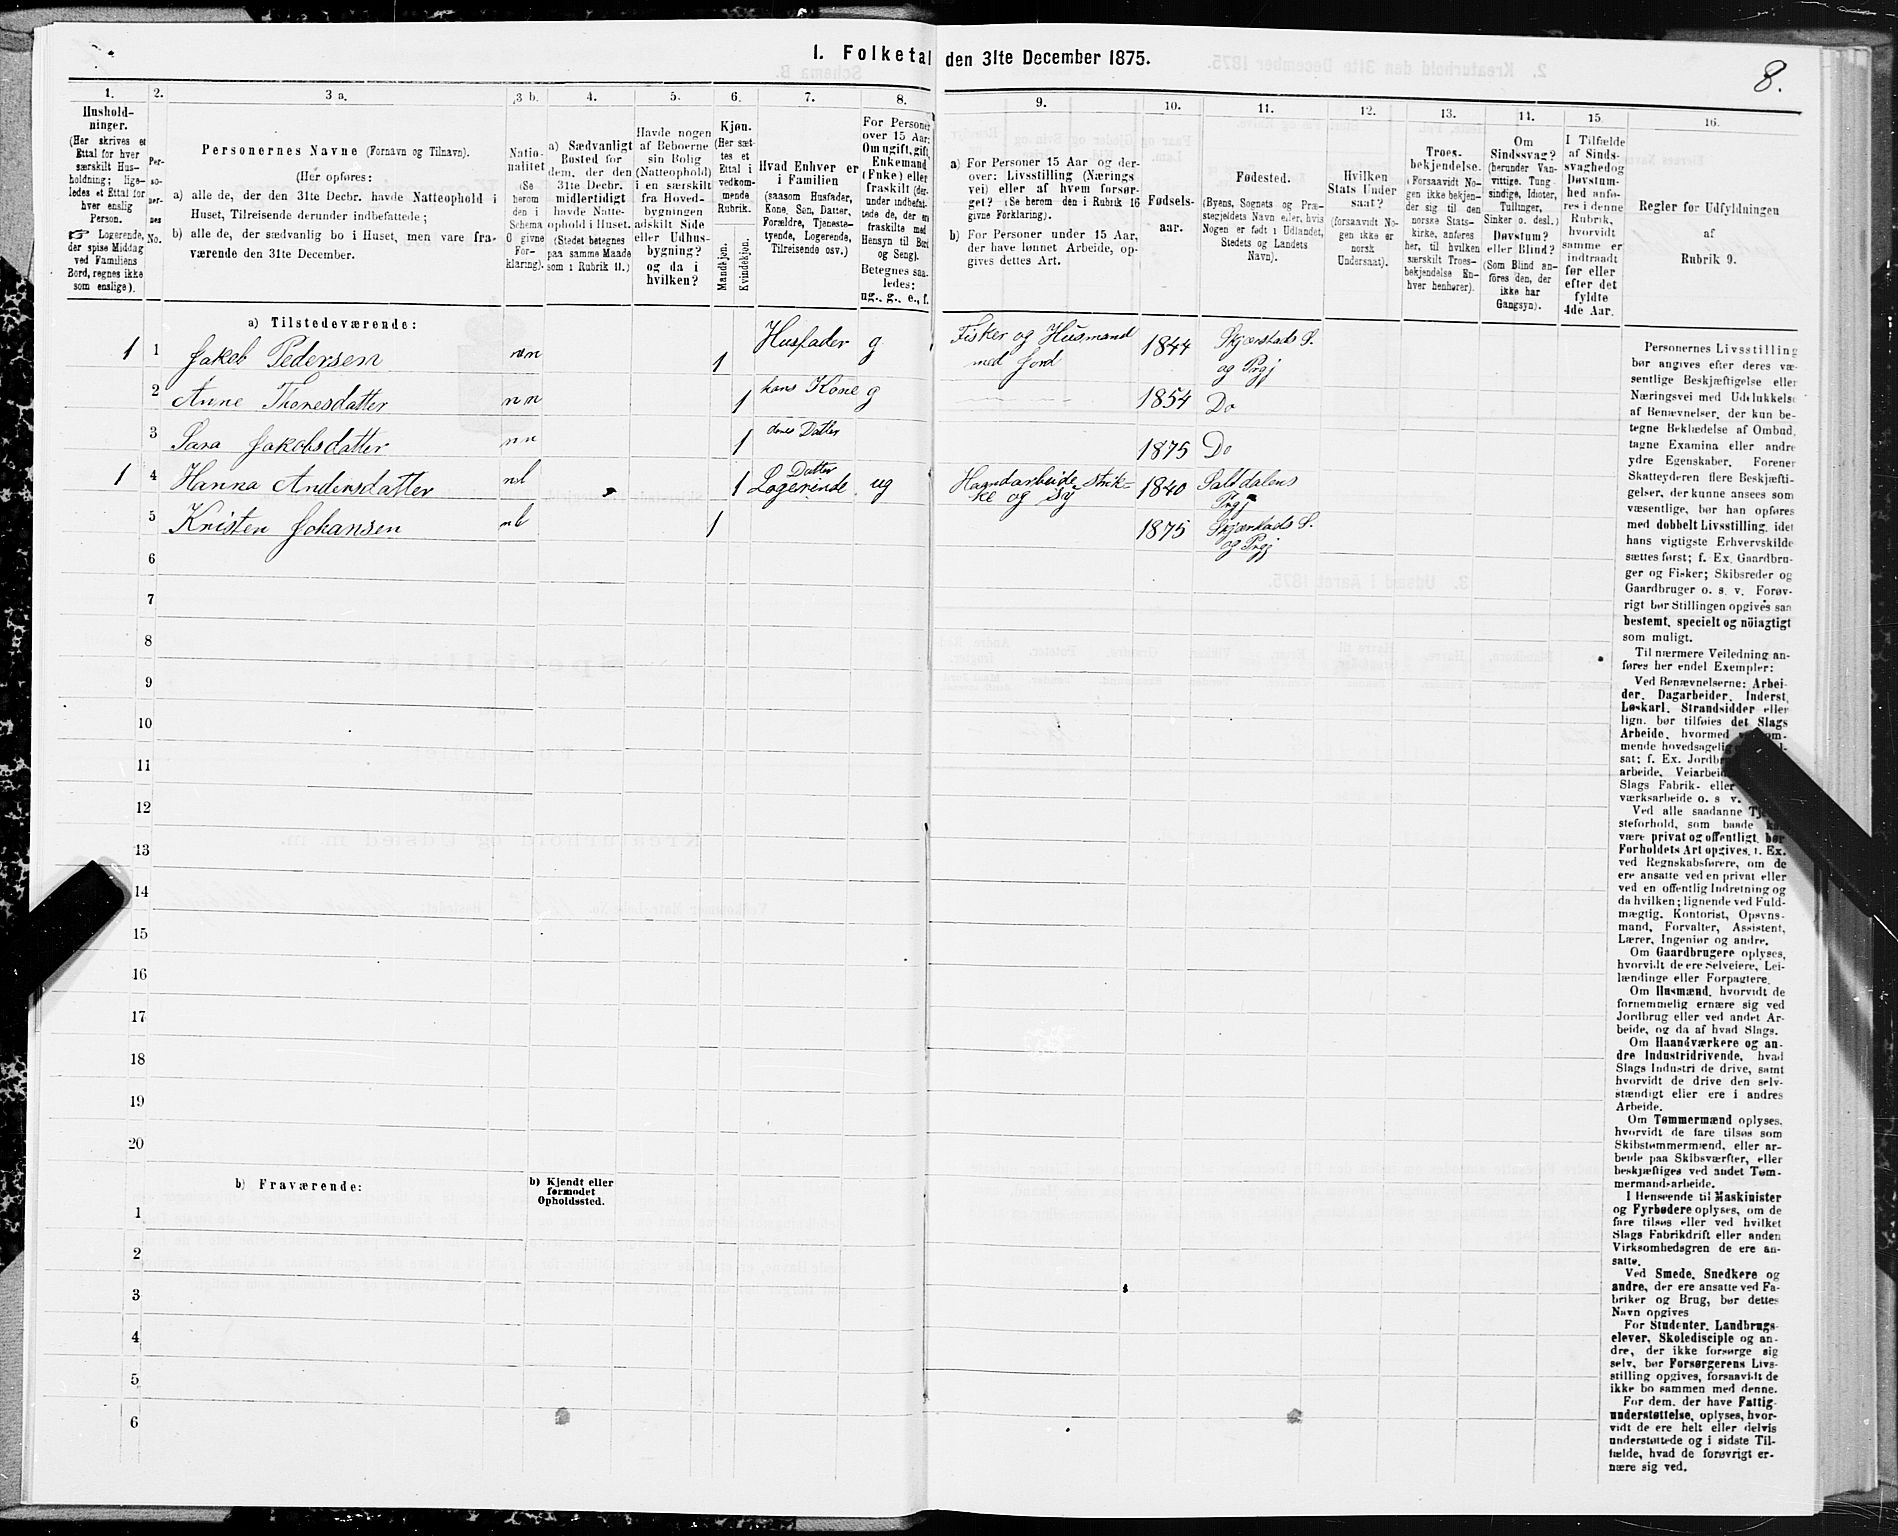 I. Folketal den 31te December 1875.
8.
1.
Hushold-
ninger.
(Her skrives et
Ettal for hver
særskilt Hus-
holdning; lige-
ledes et Ettal for
hver enslig
Person.
☞ Logerende,
der spise Middag
ved Familiens
Bord, regnes ikke
som enslige).
2.
Per-
so-
ner-
nes
No.
3 a.
Personernes Navne (Fornavn og Tilnavn).
(Her opføres:
a) alle de, der den 31te Decbr. havde Natteophold i
Huset, Tilreisende derunder indbefattede;
b) alle de, der sædvanlig bo i Huset, men vare fra-
værende den 31te December.
3 b.
Natio-
nalitet
(Se
herom
den i
Schema
O givne
For-
klaring).
4.
a) Sædvanligt
Bosted for
dem, der den
31te Decbr.
midlertidigt
havde Natte-
ophold i Huset.
(Stedet betegnes
paa samme Maade
som i Rubrik 11.)
5.
Havde nogen
af Beboerne
sin Bolig
(Natteophold)
i en særskilt
fra Hoved-
bygningen
adskilt Side
eller Udhus-
bygning?
og da i
hvilken?
6.
Kjøn.
(Her sæt-
tes et
Ettal i
vedkom-
mende
Rubrik.
Mandkjøn.
Kvindekjøn.
7.
Hvad Enhver er
i Familien
(saasom Husfader,
Kone, Søn, Datter,
Forældre, Tjeneste-
tyende, Logerende,
Tilreisende osv.)
8.
For Personer
over 15 Aar:
Om ugift, gift,
Enkemand
(Enke) eller
fraskilt (der-
under indbefat-
tede de, der ere
fraskilte med
Hensyn til Bord
og Seng).
Betegnes saa-
ledes:
ug., g., e., f.
9.
a) For Personer 15 Aar og der-
over: Livsstilling (Nærings-
vei) eller af hvem forsør-
get? (Se herom den i Rubrik 16
givne Forklaring).
b) For Personer under 15 Aar,
der have lønnet Arbeide, op-
gives dettes Art.
10.
Fødsels-
aar.
11.
Fødested.
(Byens, Sognets og Præ-
stegjeldets Navn eller, hvis
Nogen er født i Udlandet,
Stedets og Landets
Navn).
12.
Hvilken
Stats Under
saat?
(forsaavidt No-
gen ikke er
norsk
Undersaat).
13.
Troes-
bekjendelse.
(Forsaavidt No-
gen ikke bekjen-
der sig til den
norske Stats-
kirke, anføres
her, til hvilken
særskilt Troes-
bekjendelse En-
hver henhører).
14.
Om
Sindssvag?
(herunder Van-
vittige, Tung-
sindige, Idioter,
Tullinger,
Sinker o. desl.)
Døvstum?
eller Blind?
(Som Blind an-
føres den, der
ikke har
Gangsyn).
15.
I Tilfælde
af Sinds-
svaghed og
Døvstum-
hed anfø-
res i denne
Rubrik,
hvorvidt
samme er
indtraadt
før eller
efter det
fyldte
4de Aar.
16.
Regler for Udfyldningen
af
Rubrik 9.
a) Tilstedeværende:
1 1 Jakob Pedersen nn 1 Husfader g Fisker og Husmand
med Jord 1844 Skjerstads S.
og Prgj
2 Anne Thonesdatter nn 1 hans Kone g 1854 Do
3 Sara Jakobsdatter nn 1 deres Datter 1875 Do
1 4 Hanna Andersdatter nl 1 Datter
Logerende ug Haandarbeide Strik-
ke og Sy 1840 Saltdalens
Prgj
5 Kristen Johansen nl 1 1875 Skjerstads S.
og Prgj
6
7
8
9
10
11
12
13
14
15
16
17
18
19
20
b) Fraværende:
b) Kjendt eller
formodet
Opholdssted.
1
2
3
4
5
6
Personernes Livsstilling
bør angives efter deres væ-
sentlige Beskjæftigelse eller
Næringsvei med Udelukkelse
af Benævnelser, der kun be-
tegne Beklædelse af Ombud,
tagne Examina eller andre
ydre Egenskaber. Forener
Skatteyderen flere Beskjæfti-
gelser, der kunne ansees som
væsentlige, bør han opføres
med dobbelt Livsstilling, idet
hans vigtigste Erhvervskilde
sættes først; f. Ex. Gaardbru-
ger og Fisker; Skibsreder og
Gaardbruger o. s. v. Forøv-
rigt bør Stillingen opgives saa
bestemt, specielt og nöiagtigt
som muligt.
Til nærmere Veiledning an-
føres her endel Exempler:
Ved Benævnelserne: Arbei-
der, Dagarbeider, Inderst,
Løskarl, Strandsidder eller
lign. bør tilføies det Slags
Arbeide, hvormed
mende hovedsagelig
sat; f. Ex.
arbeide,
Slags Fabrik- eller
værksarbeide o. s v.
Ved alle saadanne
steforhold, som baade
være privat og offentligt, bør
Forholdets Art opgives, f. Ex.
ved Regnskabsførere, om de
ere ansatte ved en privat eller
ved en offentlig Indretning og
da hvilken; lignende ved Fuld-
mægtig, Kontorist, Opsyns-
mand, Forvalter, Assistent,
Lærer, Ingeniør og andre.
Om Gaardbrugere oplyses,
hvorvidt de ere Selveiere, Lei-
lændinge eller Forpagtere.
Om Husmænd, hvorvidt de
fornemmelig ernære sig ved
Jordbrug eller ved andet Ar-
beide, og da af hvad Slags.
Om Haandværkere og an-
dre Industridrivende, hvad
Slags Industri de drive, samt
hvorvidt de drive den selv-
stændigt eller ere i andres
Arbeide.
Om Tømmermænd oplyses,
hvorvidt de fare tilsøs som
Skibstømmermænd, eller ar-
beide paa Skibsværfter, eller
beskjæftiges ved andet Tøm-
mermandsarbeide.
I Henseende til Maskinister
og Fyrbødere oplyses, om de
fare tilsøs eller ved hvilket
Slags Fabrikdrift eller anden
Virksomhedsgren de ere an-
satte.
Ved Smede, Snedkere og
andre, der ere ansatte ved Fa-
briker og Brug, bør dettes
Navn opgives
For Studenter, Landbrugs-
elever, Skoledisciple og an-
dre, der ikke forsørge sig
selv, bør Forsørgerens Livs-
stilling opgives, forsaavidt de
ikke bo sammen med denne.
For dem, der have Fattig-
understøttelse, oplyses, hvor-
vidt de ere helt eller delvis
understøttede og i sidste Til-
fælde, hvad de forøvrigt er-
nære sig ved.